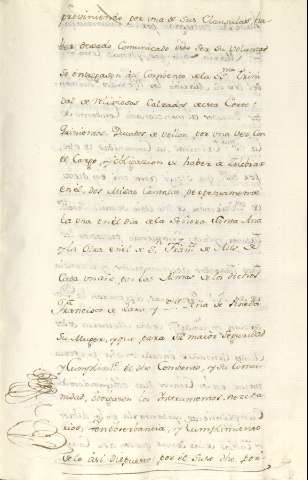 previniendo por una de sus Clausulas, ha
ver dexado Comunicado ser su Voluntad
se entregasen al Convento de la SS.ma Trini
dad de Religiosos Calzados de esta Corte
Quinientos Ducados de vellon por una vez con
el Cargo, y obligacion de haber de celebrar
en él dos Misas Cantadas perpetuamente
la una en el dia de la Señora Santa Ana
y la otra en el de S. Fran.co de Asis de
Cada un año, por las Almas de los dichos
D.n Francisco de Lara y D.ña Ana de
su Muger, y que para su maior seguridad
y cumplim.to de dho Convento, y su Comu
nidad, otorgasen los Instrumentos necesa
rios, en observancia, y cumplimiento
de lo asi dispuesto por el suso dho, por